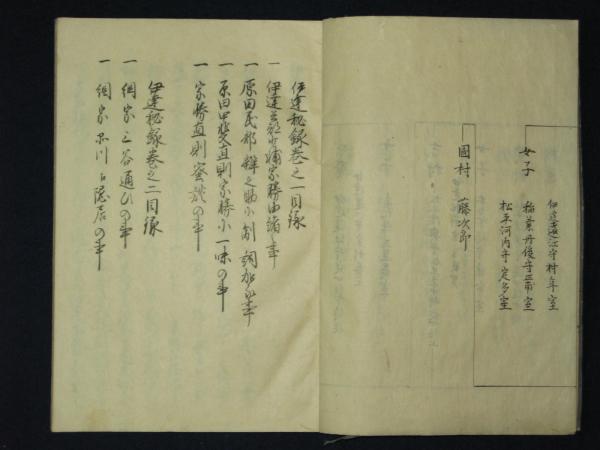 女子
伊達遠江守村年室
稲葉丹後守正甫室
松平河内守定多室
國村 藤次郎
伊達秘録巻之一目録
一 伊達兵部少輔家勝由緒之事
一 原田民部 辨之助小割 詞加の事
一 原田甲斐直則家勝小一味の事
一 家勝直則蜜談の事
伊達秘録巻之二目録
一 綱宗三谷通ひの事
一 綱宗品川に隠居の事